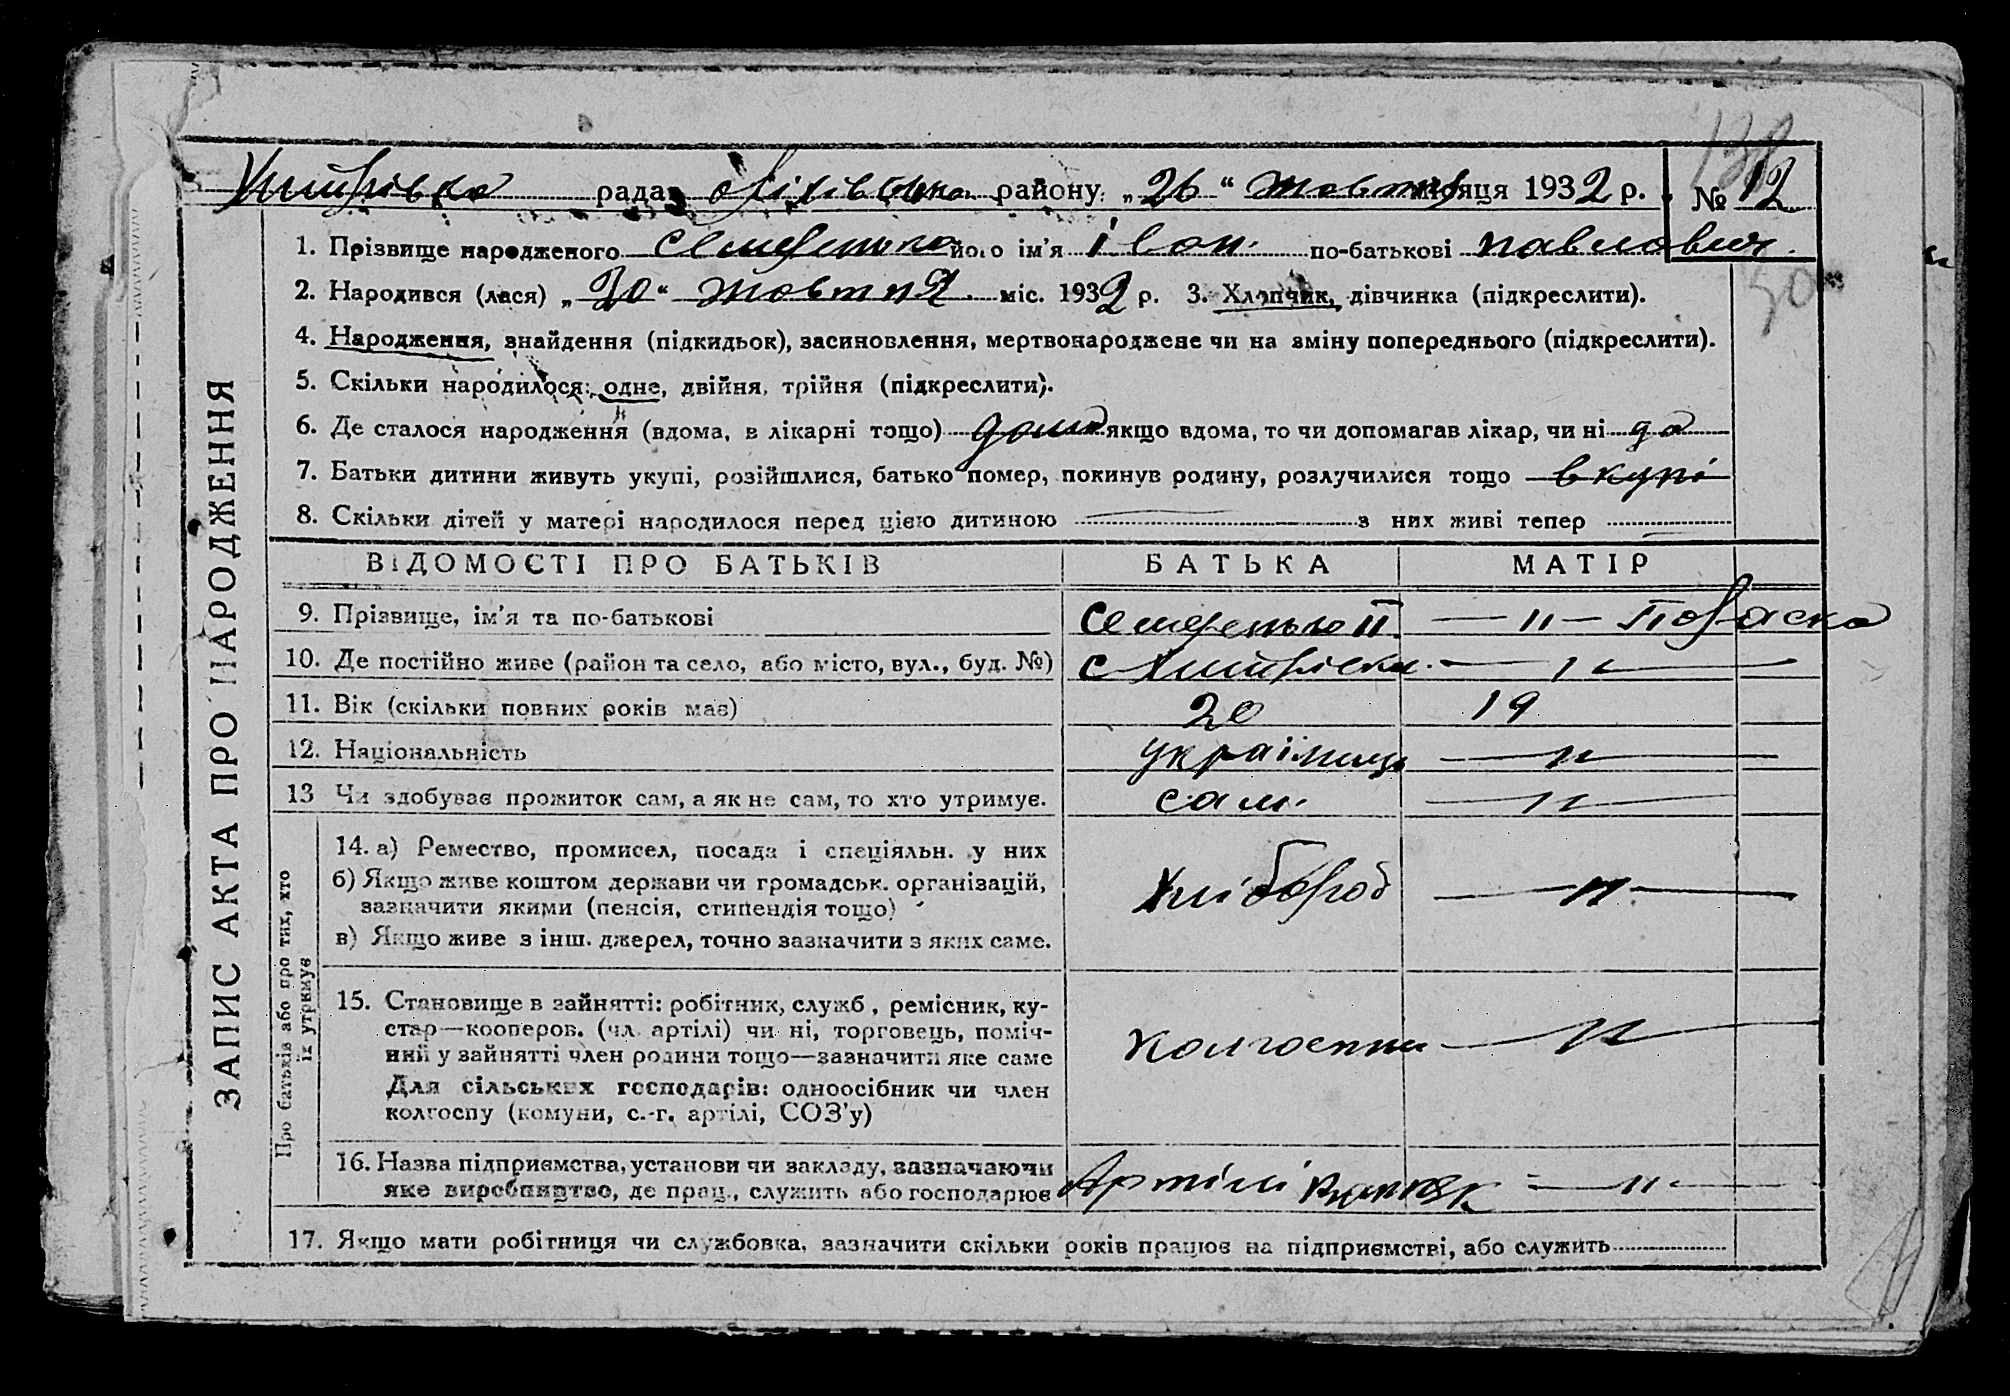 рада району „26“ жовтня місяця 1932 р. № 12
1. Прізвище народженого Семеренько його ім'я Іван по-батькові Павлович
2. Народився (лася) „20“ жовтня міс. 1932 р. 3. Хлопчик, дівчинка (підкреслити).
4. Народження, знайдення (підкидьок), засиновлення, мертвонароджене чи на зміну попереднього (підкреслити).
5. Скільки народилося: одне, двійня, трійня (підкреслити).
6. Де сталося народження (вдома, в лікарні тощо) дома якщо вдома, то чи допомагав лікар, чи ні да
7. Батьки дитини живуть укупі, розійшлися, батько помер, покинув родину, розлучилися тощо вкупі
8. Скільки дітей у матері народилося перед цією дитиною — з них живі тепер
ЗАПИС АКТА ПРО НАРОДЖЕННЯ
ВІДОМОСТІ ПРО БАТЬКІВ БАТЬКА МАТІР
9. Прізвище, ім'я та по-батькові Семеренько П. — " — Параска
10. Де постійно живе (район та село, або місто, вул., буд. №) с — " —
11. Вік (скільки повних років має) 20 19
12. Національність українець — " —
13 Чи здобуває прожиток сам, а як не сам, то хто утримує. сам. — " —
Про батьків або про тих, хто
їх утримує
14. а) Ремество, промисел, посада і спеціяльн. у них
б) Якщо живе коштом держави чи громадськ. організацій,
зазначити якими (пенсія, стипендія тощо)
в) Якщо живе з інш. джерел, точно зазначити з яких саме.
Хлібороб — " —
15. Становище в зайнятті: робітник, служб, ремісник, ку-
стар—кооперов. (чл. артілі) чи ні, торговець, поміч-
ний у зайнятті член родини тощо—зазначити яке саме
Для сільських господарів: одноосібник чи член
колгоспу (комуни, с.-г. артілі, СОЗ'у)
колгоспник — " —
16. Назва підприємства, установи чи закладу, зазначаючи
яке виробництво, де прац., служить або господарює
Артілі — " —
17. Якщо мати робітниця чи службовка, зазначити скільки років працює на підприємстві, або служить